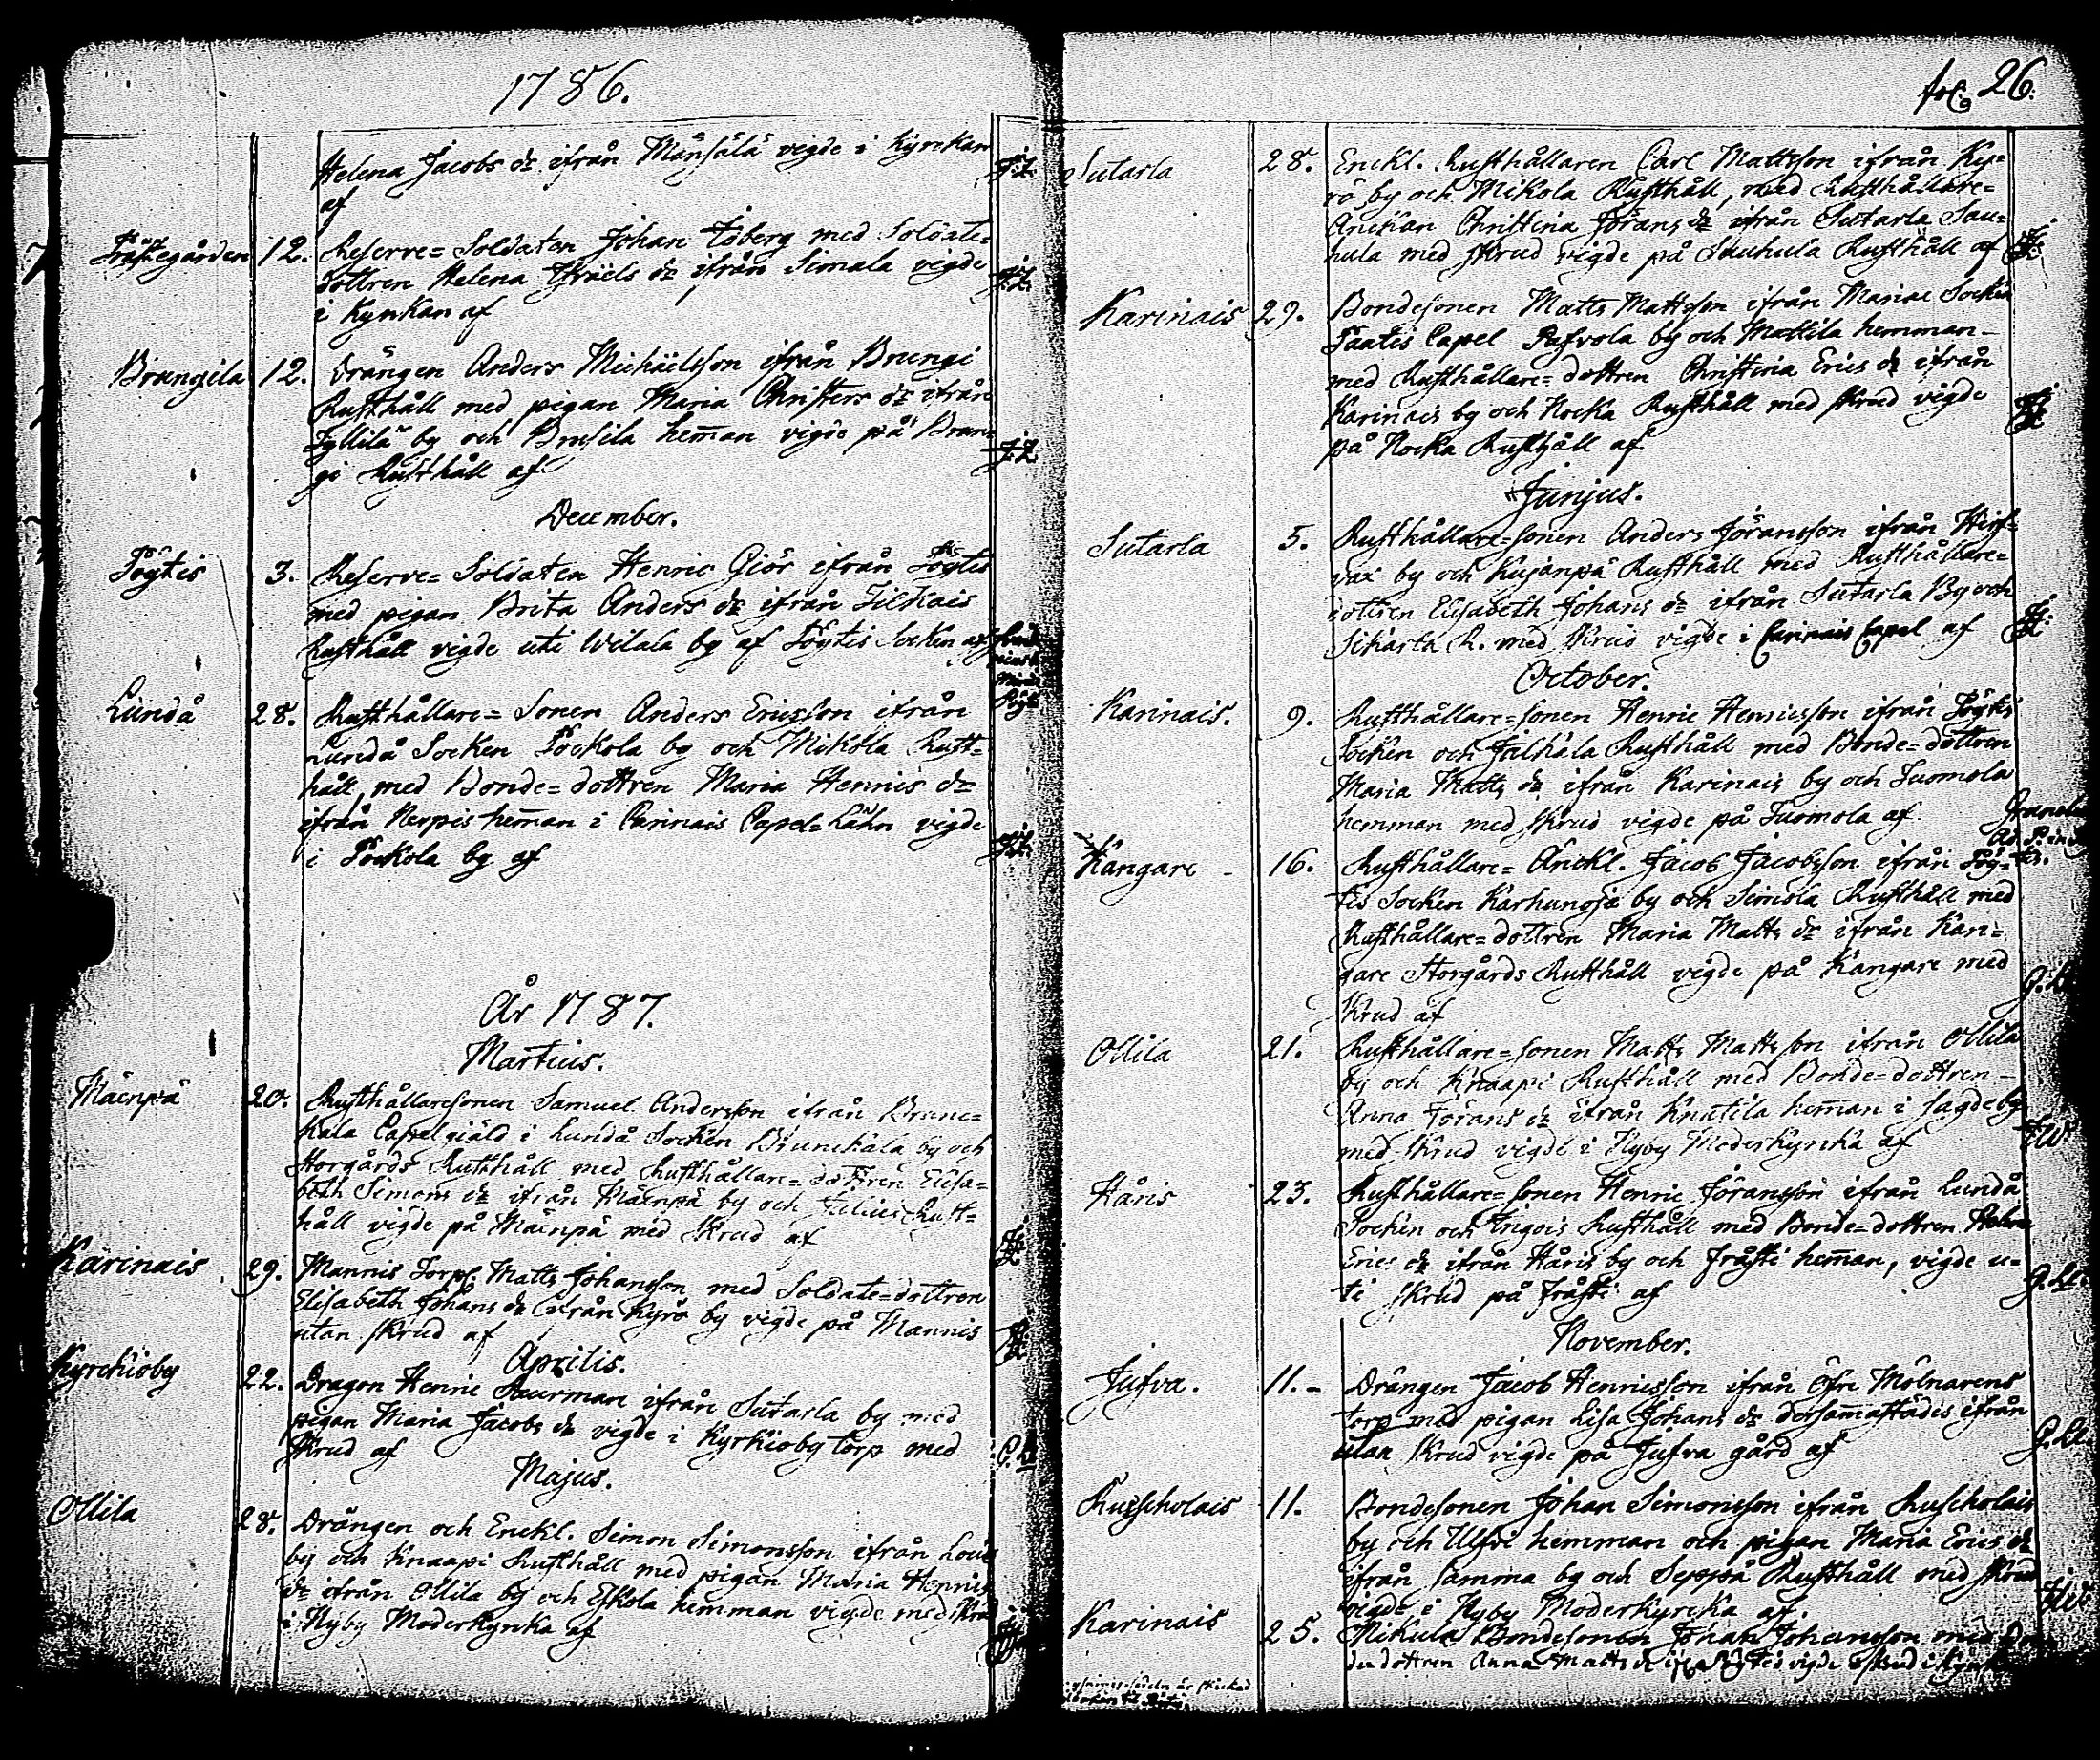 1786.
Helena Jacobs dr ifrån Mänsälä vigde i Kyrckan
af
Prästegården 12. Reserve= Soldaten Johan Töberg med Soldate=
dottren Helena Israels dr ifrån Simala vigde
i Kyrkan af
Brangila 12. Drängen Anders Michaelsson ifrån Brungi
Rusthåll med pigan Maria Christers dr ifrån
by och Brusila heman vigde på Bran=
gi Rusthåll af
December.
Pöytis 3. Reserve= Soldaten Henric Giös ifrån Pöytis
med pigan Brita Anders dr ifrån Tilkais
Rusthåll vigde uti Wilala by af Pöytis Socken af
Lundå 28. Rusthållare= Sonen Anders Ericsson ifrån
Lundå Socken Pockola by och Mikola Rust=
håll med Bonde= dottren Maria Henrics dr
ifrån Nerpis heman i Carinais Capel= Lähn vigde
i Pockola by af
År 1787.
Martius.
Mäenpä 20. Rusthållaresonen Samuel Andersson ifrån Brunc=
kala Capelgiäld i Lundå Socken Brunckala by och
Storgårds Rusthåll med Rusthållare= dottren Elisa=
beth Simons dr ifrån Mäenpä by och Rust=
håll vigde på Mäenpä med Skrud af
Karinais 29. Mannis Torp: Matts Johansson med Soldate= dottren
Elisabeth Johans dr ifrån Kyrö by vigde på Mannis
utan skrud af
Aprilis.
Kyrckioby 22. Dragon Henric Saurman ifrån Sutarla by med
pigan Maria Jacobs dr vigde i Kyrkioby torp med
Skrud af
Majus.
Ollila 28. Drängen och Enckl. Simon Simonsson ifrån
by och Knaapi Rusthåll med pigan Maria Henrics
dr ifrån Ollila by och Eskola hemman vigde med Skrud
i Nyby Moderkyrka af
fol. 26.
Sutarla 28. Enckl. Rusthållaren Carl Mattsson ifrån Ky=
rö by och Mikola Rusthåll, med Rusthållare=
Änckan Christina Jörans dr ifrån Sutarla Sau=
hula med Skrud vigde på Rusthåll af
Karinais 29. Bondesonen Matts Mattsson ifrån Mariae Socken
Paatis Capel by och Mattila hemman
med Rusthållare= dottren Christina Erics dr ifrån
Karinais by och Nocka Rusthåll med Skrud vigde
på Nocka Rusthåll af
Junjus.
Sutarla 5. Rusthållare= sonen Anders Jöransson ifrån Hirf=
vax by och Kujanpä Rusthåll med Rusthållare=
dottren Elisabeth Johans dr ifrån Sutarla By och
R. med Skrud vigde i Carinais Capel af
October.
Karinais. 9. Rusthållare= sonen Henric Henricsson ifrån Pöytis
Socken och Jalhala Rusthåll med Bonde= dottren
Maria Matts dr ifrån Karinais by och Tuomola
hemman med Skrud vigde på Tuomola af
Kangare 16. Rusthållare= Änckl. Jacob Jacobsson ifrån Pöy=
tis Socken Karhunoja by och Simola Rusthåll med
Rusthållare= dottren Maria Matts dr ifrån Kan=
gare Storgårds Rusthåll vigde på Kangare med
Skrud af
Ollila 21. Rusthållare= sonen Matts Mattsson ifrån Ollila
by och Knaapi Rusthåll med Bonde= dottren
Anna Jörans dr ifrån Knutila heman i
med Skrud vigde i Nyby Moderkyrka af
Håris 23. Rusthållare= sonen Henric Jöransson ifrån Lundå
Socken och Trigois Rusthåll med Bonde= dottren
Erics dr ifrån Håris by och Fråsti heman, vigde u=
ti Skrud på Fråsti af
November.
Jufva. 11. Drängen Jacob Henricsson ifrån Öfre Mölnarens
torp med pigan Lisa Johans dr dersammastädes ifrån
utan Skrud vigde på Jufva gård af
Ruscholais 11. Bondesonen Johan Simonsson ifrån Ruscholais
by och Ulfvi hemman och pigan Maria Erics dr
ifrån samma by och Seppä Rusthåll med Skrud
vigde i Nyby Moderkyrcka af.
Karinais 25. Mikula Bondesonen Johan Johansson med
dottren Anna Matts dr